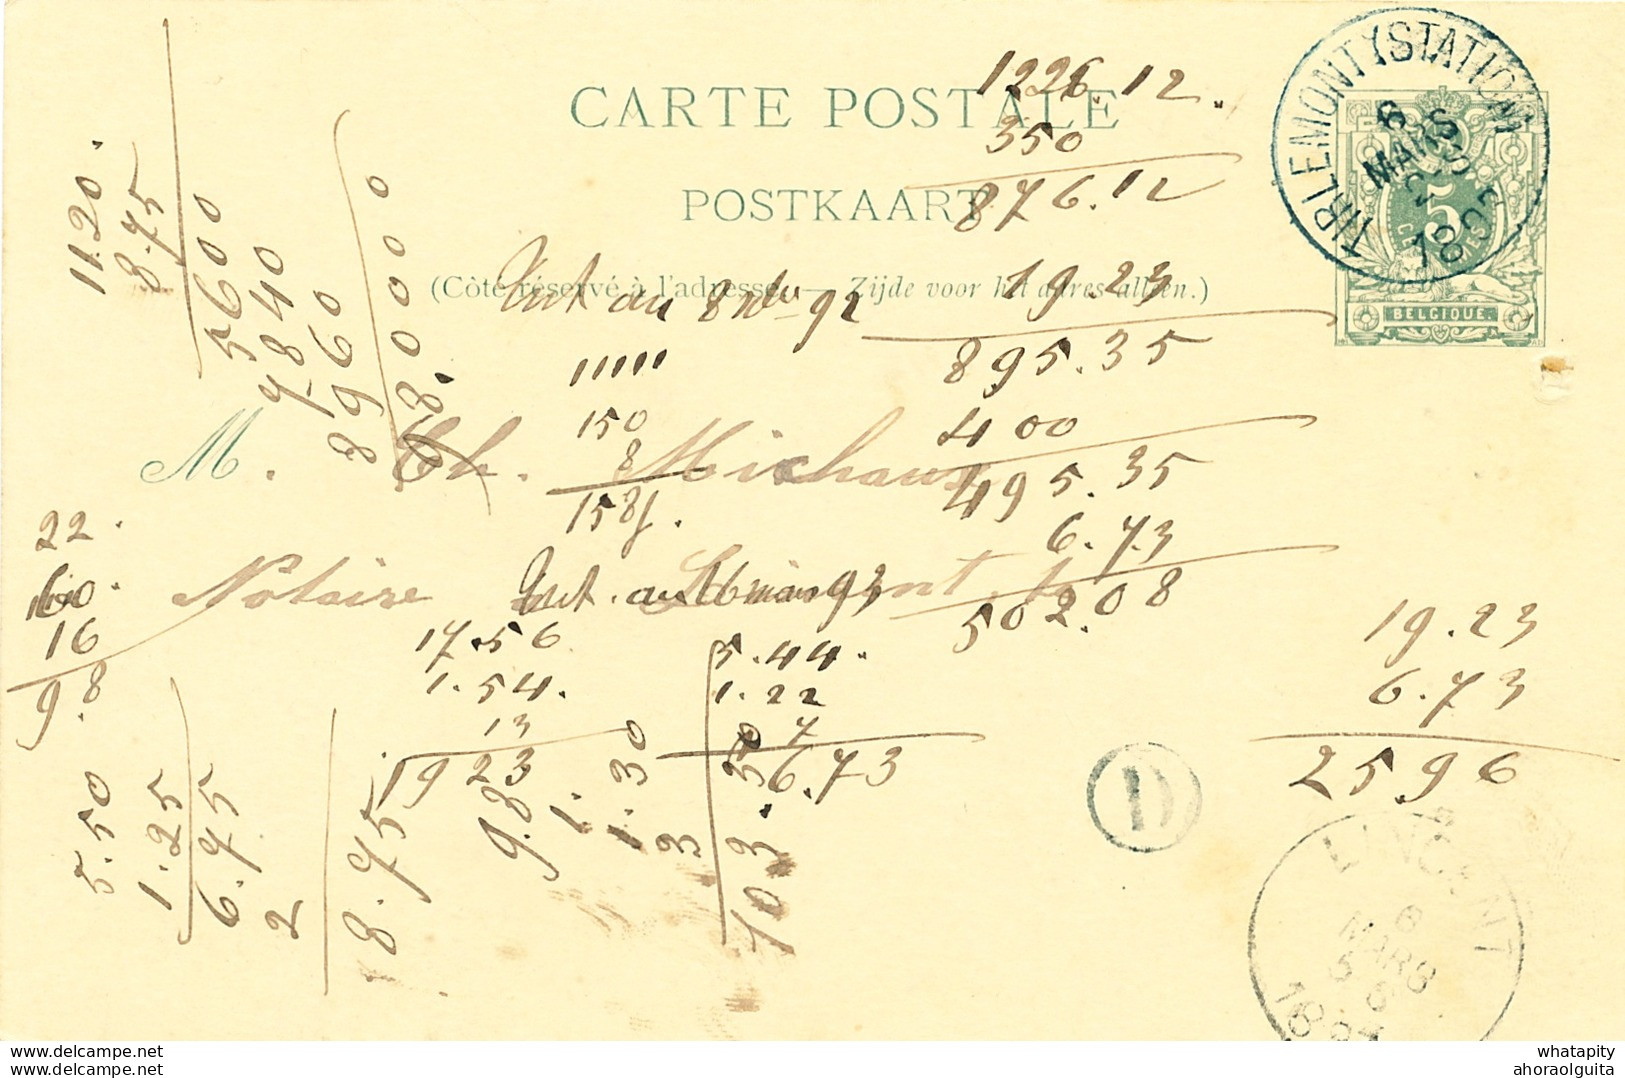 CARTE POSTALE
POSTKAART
(Côté réservé à l'adresse. — Zijde voor het adres alleen.)
TIRLEMONT (STATION)
6
MARS
5
BELGIQUE.
1226.12.
350
876.12
19.23
895.35
400
495.35
6.73
502.08
Int au 8 92
"""""
150
8
158
M. Ch. Michaux
Notaire
Int. au 6 mars 93
11.20.
8.75
5600
7840
8960
98.0000
22.
16
9.8
17.56
1.54.
13
19 23
5.44.
1.22
7
6.73
19.23
6.73
25.96
5.50
1.25
6.75
2
8.75
9.8
1.
1.30
3
103.50
D
LINCENT
6
MARS